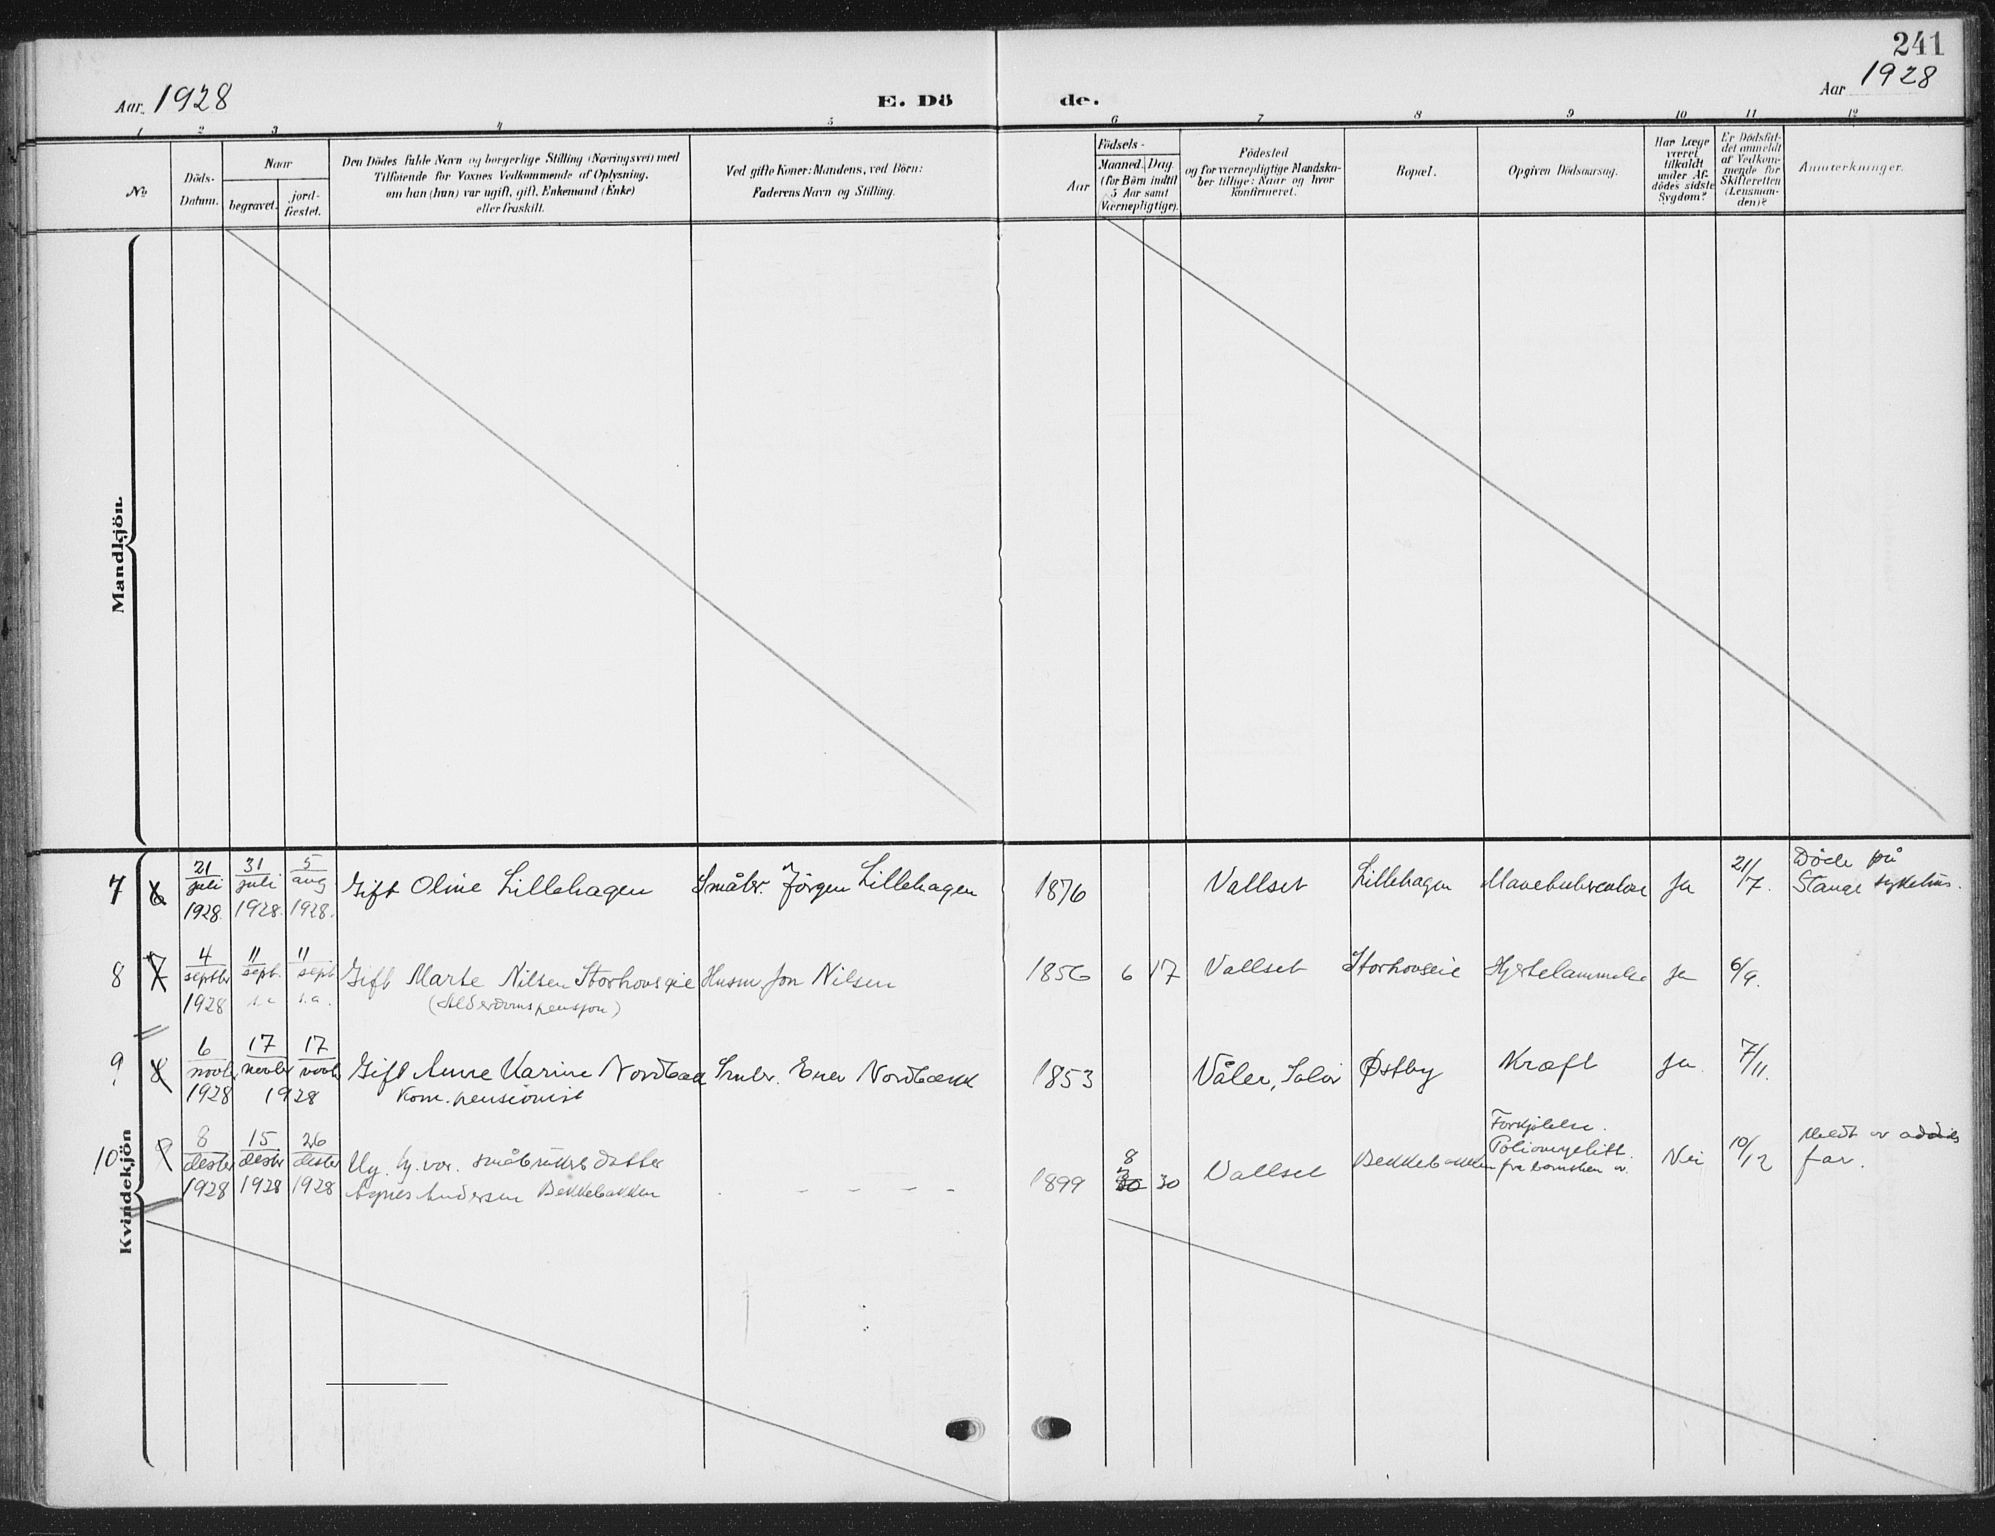 241
Aar 1928
E. Dö de.
Aar 1928
1 2 3 4 5 6 7 8 9 10 11 12
No
Döds-
Datum.
Naar
begravet.
jord-
fæstet.
Den Dödes fulde Navn og borgerlige Stilling (Næringsvei) med
Tilföiende for Voxnes Vedkommende af Oplysning,
om han (hun) var ugift, gift, Enkemand (Enke)
eller fraskilt.
Ved gifte Koner: Mandens, ved Börn:
Faderens Navn og Stilling.
Aar
Födsels-
Maaned. Dag
(for Börn indtil
5 Aar samt
Værnepligtige).
Födested
og for værnepligtige Mandska-
ber tillige: Naar og hvor
konfirmeret.
Bopæl.
Opgiven Dödsaarsag.
Har Læge
været
tilkaldt
under Af-
dödes sidste
Sygdom?
Er Dödsfal-
det anmeldt
af Vedkom-
mende for
Skifteretten
(Lensman-
den)?
Anmærkninger.
Mandkjön.
Kvindekjön
7 6 21 juli 1928. 31 juli 1928. 5 aug 1928. Gift Oline Lillehagen Småbr. Jörgen Lillehagen 1876 Vallset Lillehagen Mavetuberculose Ja 21/7. Döde på
Stange sykehus.
8 7 4 septbr 1928 11 sept. s.a. 11 sept s.a. Gift Marte Nilsen Storhovseie Husm. Jon Nilsen 1856 6 17 Vallset Storhovseie Hjertelammelse Ja 6/9.
(Alderdomspensjon)
9 8 6 novbr 1928 17 novbr 17 novbr 1928 Gift Anne Karine Nordbæk Smbr. Nordbækk 1853 Våler, Solör Østby Kræft Ja. 7/11.
Kom. pensionist
10 9 8 desbr 1928 15 desbr 1928 26 desbr 1928 Ug. småbrukers datter
Agnes Andersen Bekkebakken - - - - 1899 8 30 Vallset Bekkebakken Forkjölelse.
fra barnsben av Nei 10/12 Meldt av
far.